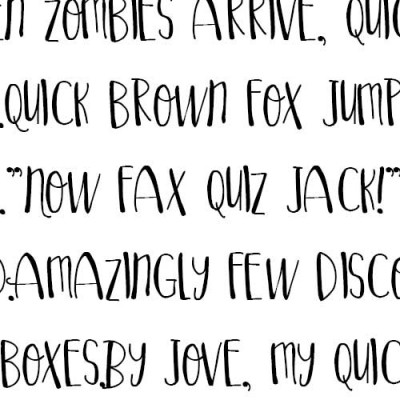 en zombies arrive, quic
.quick brown fox jump
."now fax quiz Jack!"
o:Amazingly few disco
boxes.By Jove, my quic